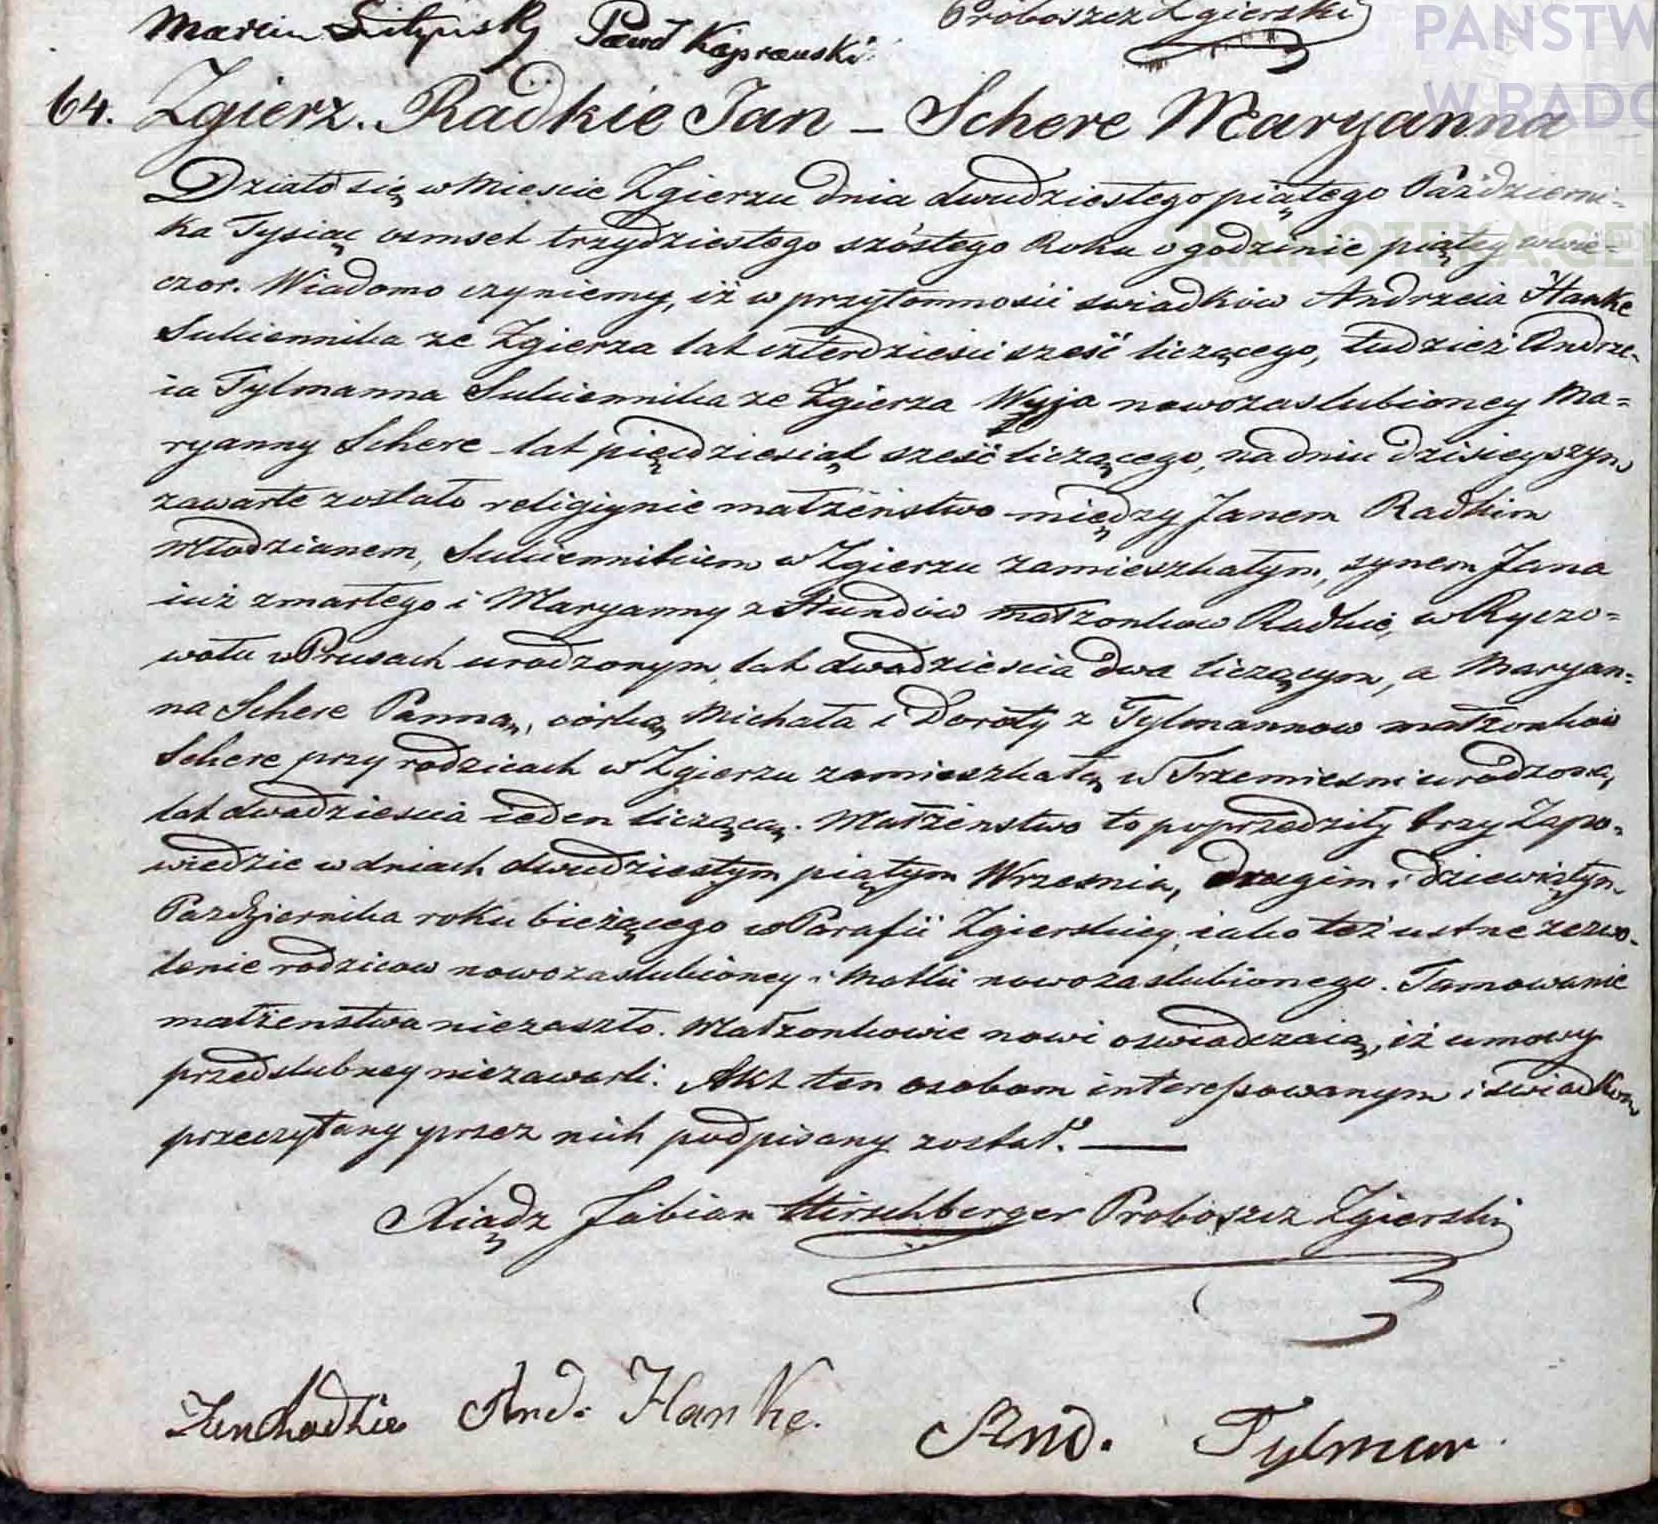 Marcin Paweł Kaprauski Proboszcz Zgierski
PAŃSTW
W RADO
SKANOTEKA.GE
64. Zgierz. Radkie Jan – Schere Maryanna
Działo się w Mieście Zgierzu dnia dwudziestego piątego Październi-
ka Tysiąc osmset trzydziestego szóstego Roku o godzinie piątey wwie-
czor. Wiadomo czyniemy, iż w przytomności swiadków Andrzeia Hanke
Sukiennika ze Zgierza lat czterdzieści sześć liczącego, tudzież Andrze-
ia Tylmanna Sukiennika ze Zgierza Wyja nowozaslubioney Ma=
ryanny Schere lat pięćdziesiąt sześć liczącego, na dniu dzisieyszym
zawarte zostało religiynie małżeństwo między Janem Radkim
Młodzianem, Sukiennikiem w Zgierzu zamieszkałym, synem Jana
iuż zmarłego i Maryanny z Hundów małżonkow Radkie, w Ryczo=
wołu w Prusach urodzonym, lat dwadzieścia dwa liczącym, a Maryan=
na Schere Panną, córką Michała i Doroty z Tylmannow małżonków
Schere przy rodzicach w Zgierzu zamieszkałą w Trzemiesni urodzoną,
lat dwadzieścia ieden liczącą. Małżeństwo to poprzedziły trzy Zapo=
wiedzie w dniach dwudziestym piątym Wrzesnia, drugim i dziewiątym
Pazdziernika roku bieżącego w Parafii Zgierskiey, iako też ustne zezwo-
lenie rodzicow nowozaslubioney i Matki nowozaslubionego. Tamowanie
małżenstwa niezaszło. Małżonkowie nowi oswiadczaią, iż umowy
przedslubney niezawarli. Akt ten osobom interessowanym i swiadkom
przeczytany przez nich podpisany został. —
Xiądz Fabian Hirschberger Proboszcz Zgierski
And. Hanke. And. Tylman